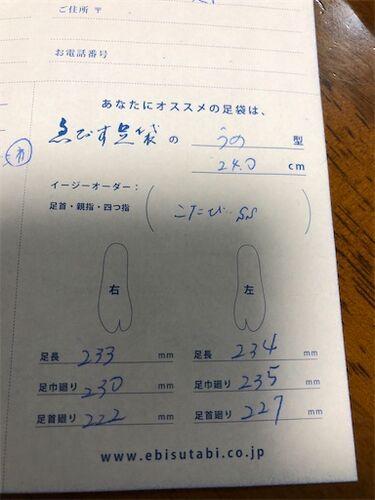 ご住所 〒
お電話番号
あなたにオススメの足袋は、
ゑびす足袋の うの 型
24.0 cm
イージーオーダー：
足首・親指・四つ指
右 左
足長 233 mm 足長 234 mm
足巾廻り 230 mm 足巾廻り 235 mm
足首廻り 222 mm 足首廻り 227 mm
www.ebisutabi.co.jp